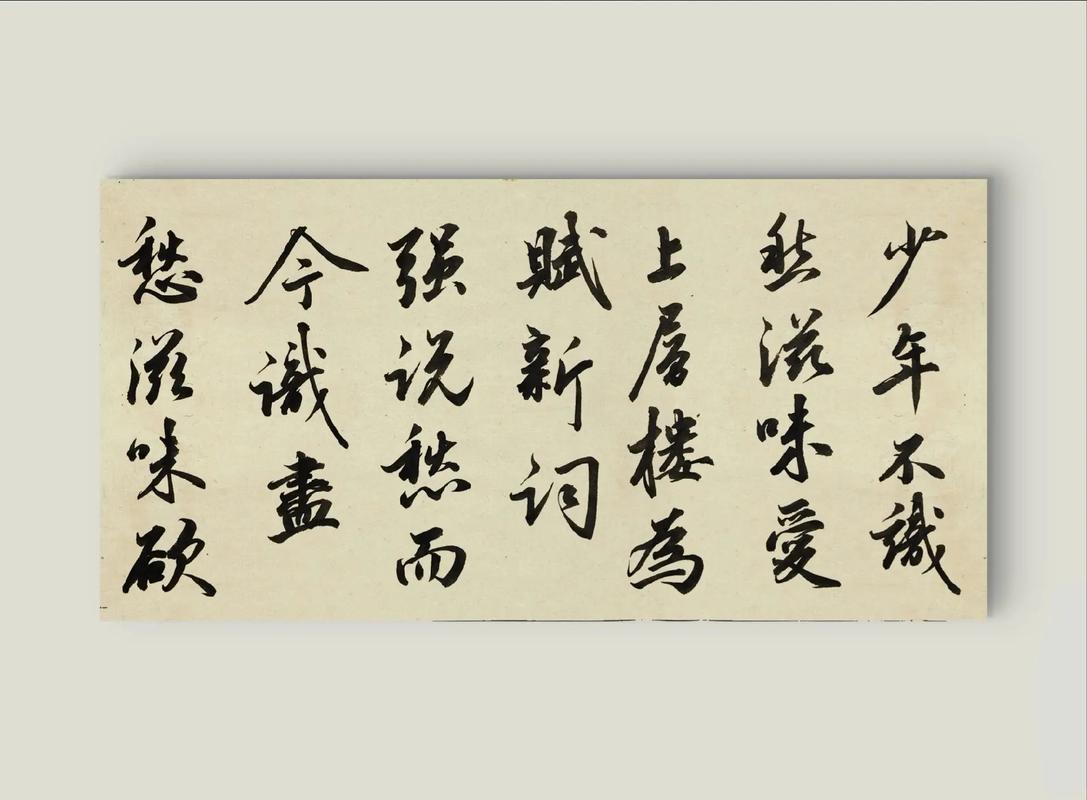 少年不識
愁滋味愛
上層楼為
賦新词
强说愁而
今識盡
愁滋味欲